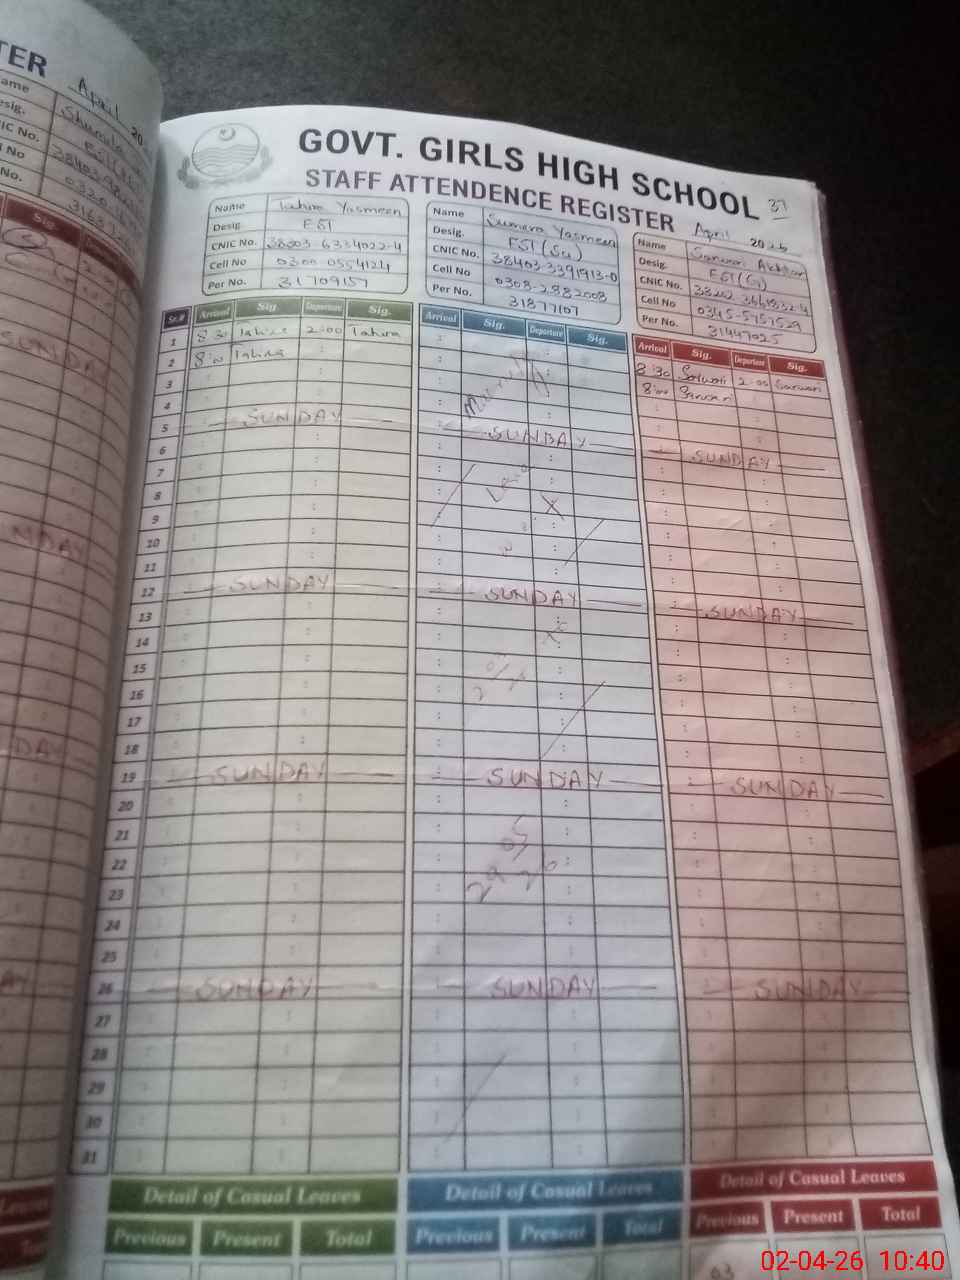 TER April 20
GOVT. GIRLS HIGH SCHOOL
STAFF ATTENDENCE REGISTER 37
April 2026
Name Tahira Yasmeen
Desig EST
CNIC No. 38403-6334022-4
Cell No 0300-0554124
Per No. 31709157
Name Sumera Yasmeen
Desig. EST (Su)
CNIC No. 38403-3391913-0
Cell No 0303-2882003
Per No. 31877107
Name Sarwari Akhtar
Desig. EST (G)
CNIC No.
Cell No 0345-5757529
Per No. 31447025
Sr.# Arrival Sig. Departure Sig. Arrival Sig. Departure Sig. Arrival Sig. Departure Sig.
1 8:30 Tahira 2:00 Tahira 8:30 Sarwari 2:00 Sarwari
2 8:00 Tahira 8:00 Sarwari
3
4
5 SUNDAY SUNDAY SUNDAY
6
7
8
9
10
11
12 SUNDAY SUNDAY SUNDAY
13
14
15
16
17
18
19 SUNDAY SUNDAY SUNDAY
20
21
22
23
24
25
26 SUNDAY SUNDAY SUNDAY
27
28
29
30
31
Detail of Casual Leaves Detail of Casual Leaves Detail of Casual Leaves
Previous Present Total Previous Present Total Previous Present Total
03
02-04-26 10:40